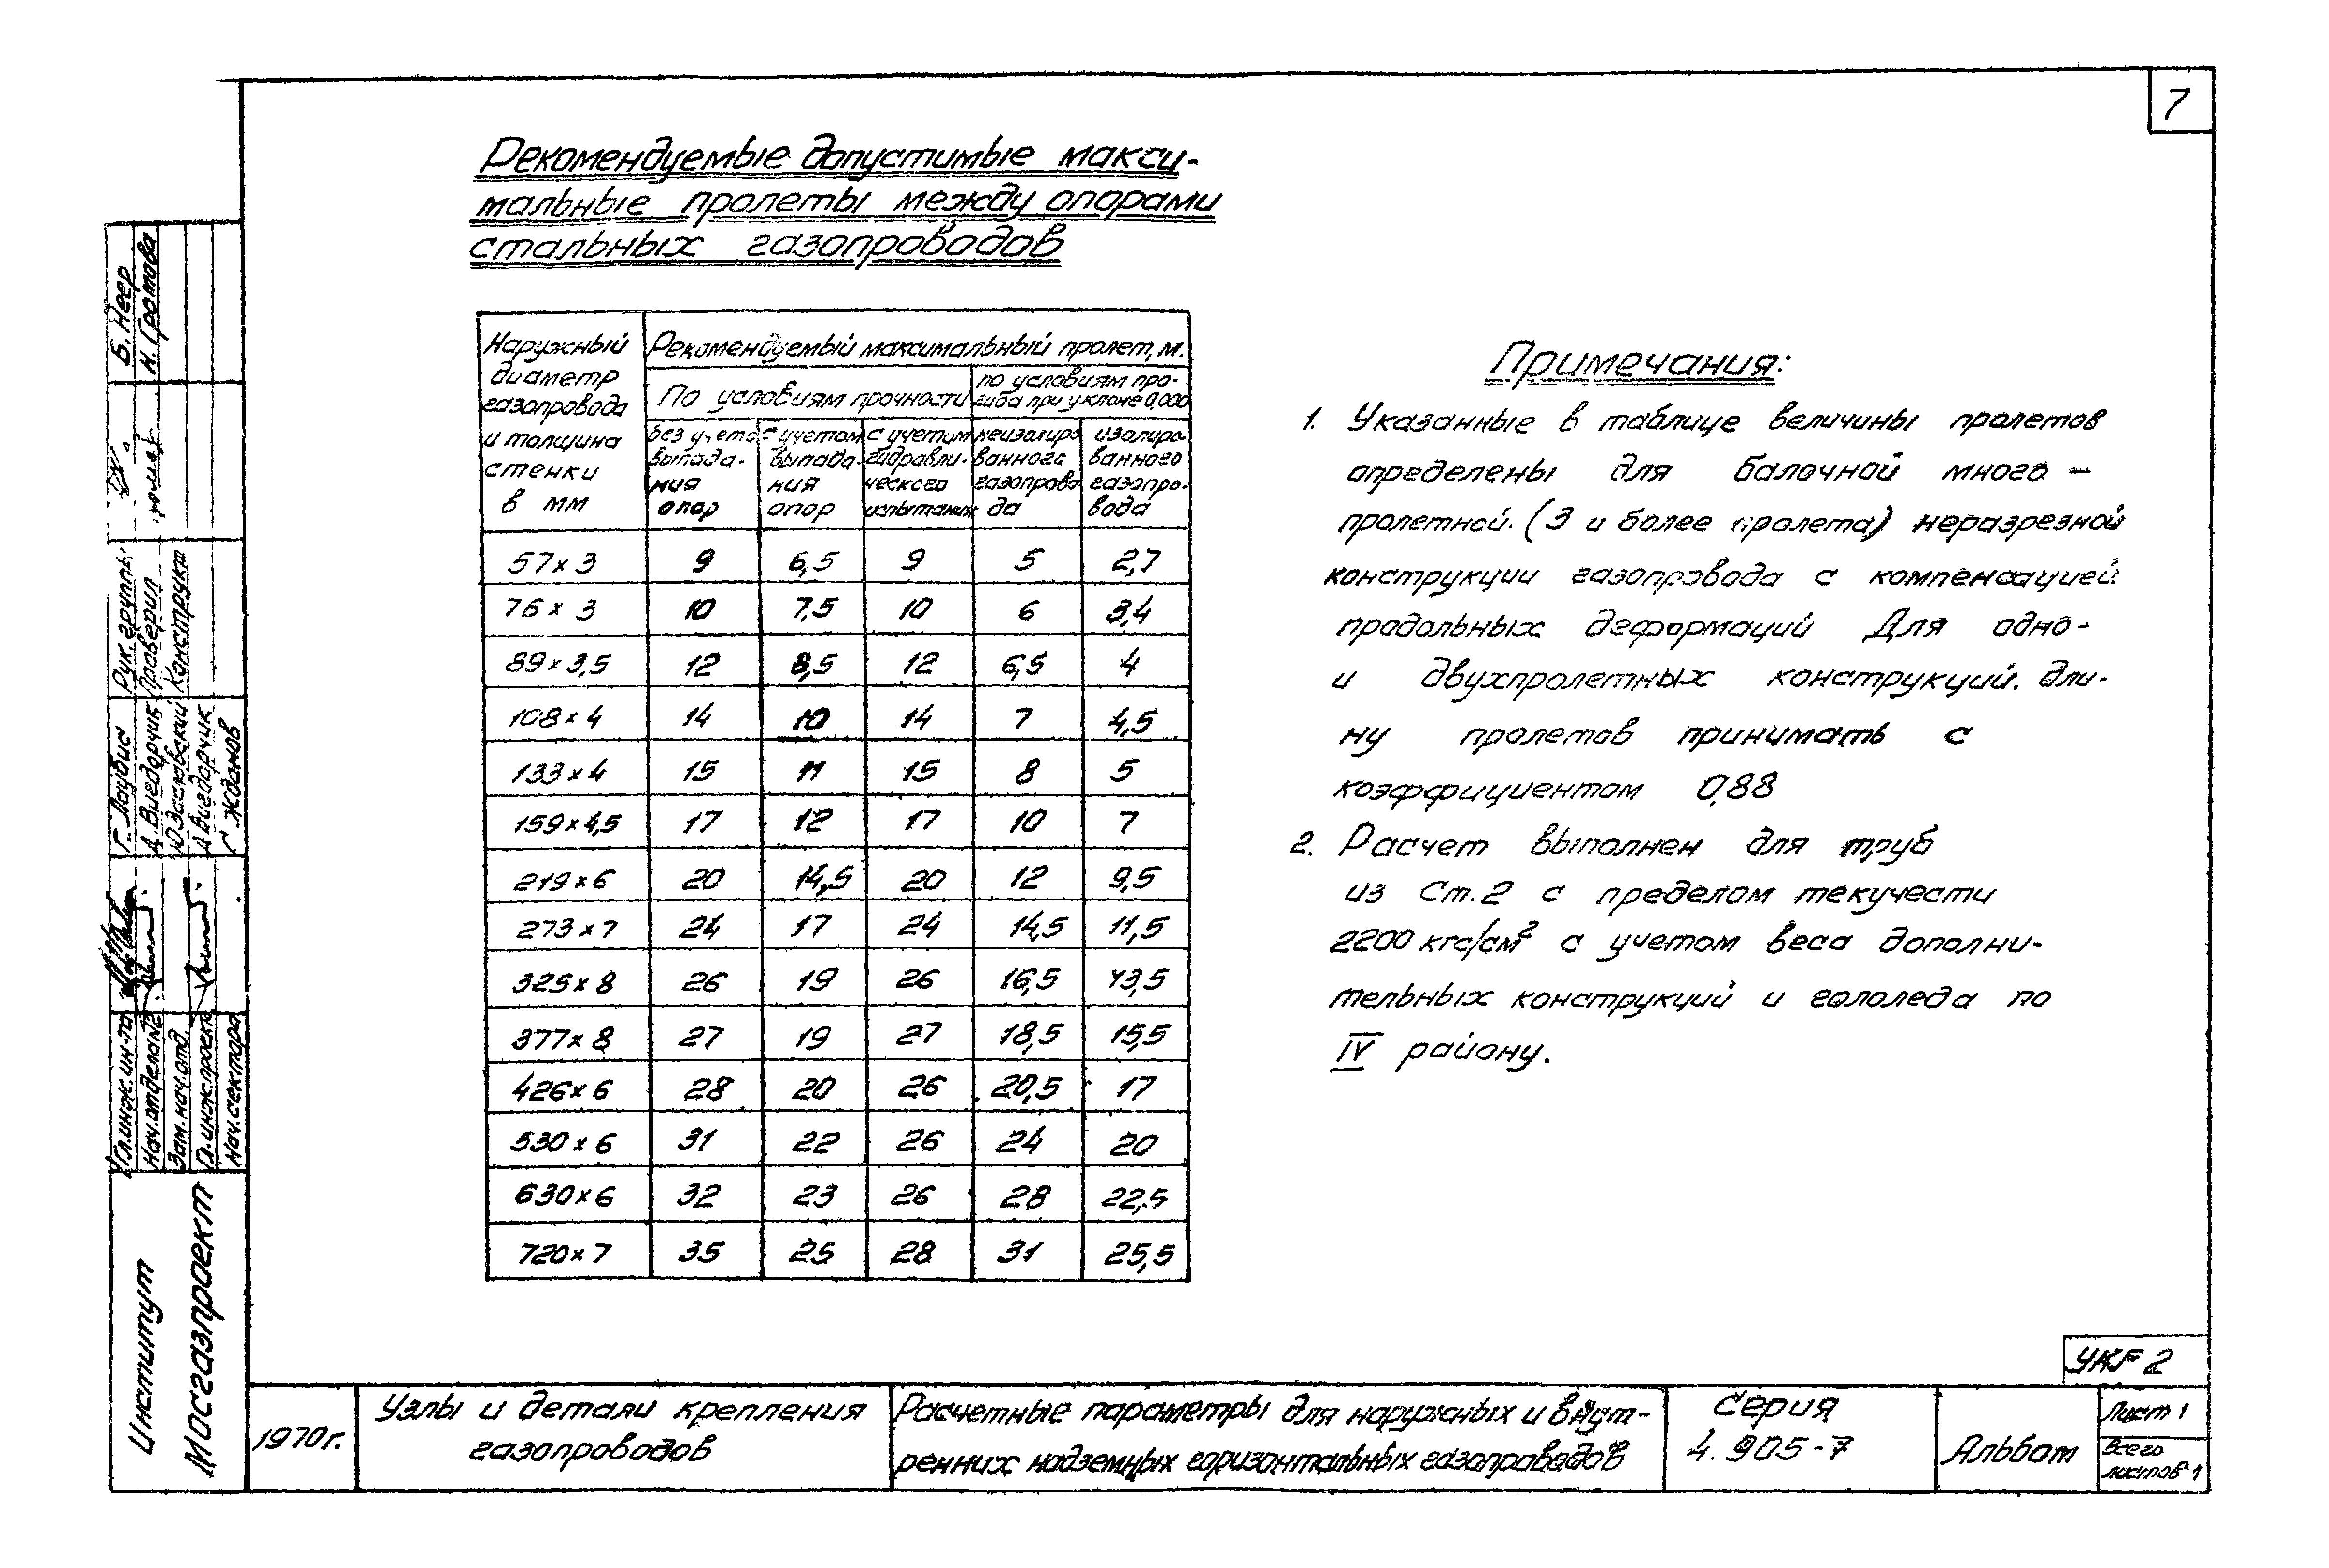 7
Рекомендуемые допустимые макси-
мальные пролеты между опорами
стальных газопроводов
Наружный диаметр газопровода и толщина стенки в мм
Рекомендуемый максимальный пролет, м.
По условиям прочности
по условиям про-
гиба при уклоне 0,000
без учета выпада-ния опор
с учетом выпада-ния опор
с учетом гидравли-ческого испытания
неизолиро ванного газопрово да
изолиро ванного газопро-вода
57×3 9 6,5 9 5 2,7
76×3 10 7,5 10 6 3,4
89×3,5 12 8,5 12 6,5 4
108×4 14 10 14 7 4,5
133×4 15 11 15 8 5
159×4,5 17 12 17 10 7
219×6 20 14,5 20 12 9,5
273×7 24 17 24 14,5 11,5
325×8 26 19 26 16,5 13,5
377×8 27 19 27 18,5 15,5
426×6 28 20 26 20,5 17
530×6 31 22 26 24 20
630×6 32 23 26 28 22,5
720×7 35 25 28 31 25,5
Примечания:
1. Указанные в таблице величины пролетов
определены для балочной много-
пролетной (3 и более пролета) неразрезной
конструкции газопровода с компенсацией
продольных деформаций Для одно-
и двухпролетных конструкций. дли-
ну пролетов принимать с
коэффициентом 0,88
2. Расчет выполнен для труб
из Ст. 2 с пределом текучести
2200 кгс/см² с учетом веса дополни-
тельных конструкций и гололеда по
IV району.
УКГ 2
1970г.
Узлы и детали крепления
газопроводов
Расчетные параметры для наружных и внут-
ренних надземных горизонтальных газопроводов
Серия
4.905-7
Альбом
Лист 1
Всего
листов 1
Институт
Мосгазпроект
Гл.инж.ин-та
Нач.отдела
Зам.нач.отд.
Гл.инж.проект
Нач.сектора
Г. Лаубис
Д. Выгдорчик
Ю Заславский
Д Вигдорчик
С Жданов
Рук. группы
Проверил
Конструкт
Б. Неер
Н. Громова